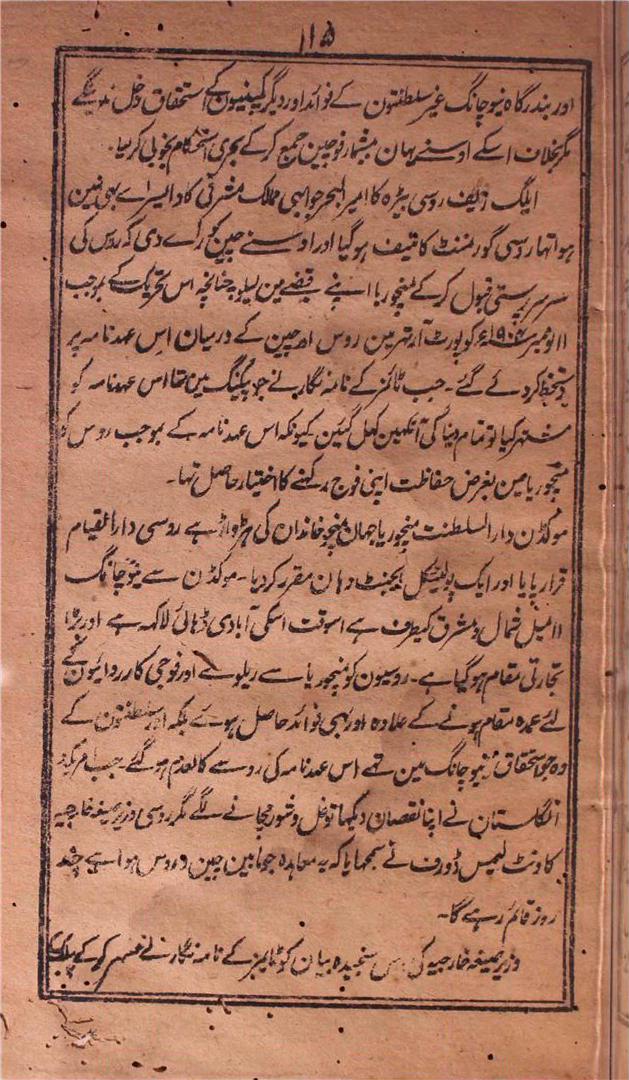 ۱۱۵
اور بندرگاہ نیوچانگ غیر سلطنتون کے فوائد اور دیگر کمپنیون کے استحقاق دخل ندینگے
مگر بخلاف اسکے اوسنے یہان بیشمار فوجین جمع کر کے بحری استحکام بخوبی کرلیا۔
ایلگ زیف روسی بیڑہ کا امیر البحر جو ابھی ممالک مشرقی کا والیسراے بھی نہین
ہوا تھا روسی گورنمنٹ کا تیف ہوگیا اور اوسنے چین کو راے دی کہ روس کی
سرپرستی قبول کر کے منچوریا اپنے قبضے مین لیلو چنانچہ اس تحریک کے بموجب
۱۱ نومبر ۱۹۰۰ء کو پورٹ آرتھر مین روس اور چین کے درمیان اس عہدنامہ پر
دستخط کر دئے گئے۔ جب ٹائمز کے نامہ نگار نے جو پیکنگ مین تھا اس عہدنامہ کو
مشتہر کیا تو تمام دنیا کی آنکھین کھل گئین کیونکہ اس عہدنامہ کے بموجب روس کو
منچوریا مین بغرض حفاظت اپنی فوج رکھنے کا اختیار حاصل تھا۔
موکڈن دار السلطنت منچوریا جہان منچو خاندان کی ہڑواڑ ہے روسی دار القیام
قرار پایا اور ایک پولیٹیکل ایجنٹ وہان مقرر کردیا۔ موکڈن سے نیوچانگ
۱۱ میل شمال و مشرق کیطرف ہے اسوقت اسکی آبادی ڈہائی لاکہہ ہے اور بڑا
تجارتی مقام ہو گیا ہے۔ روسیون کو منچوریا سے ریلوے اور فوجی کارروائیون کے
لئے عمدہ مقام ہونے کے علاوہ اور بھی فوائد حاصل ہوے بلکہ اور سلطنتون کے
وہ جو استحقاق نیوچانگ مین تھے اس عہدنامہ کی رو سے کالعدم ہو گئے جب امریکہ و
انگلستان نے اپنا نقصان دیکھا تو غل و شور مچانے لگے مگر روسی وزیر صیغہ خارجیہ
کاونٹ لیمس ڈورف نے سمجھایا کہ یہ معاہدہ جو مابین چین و روس ہوا ہے چند
روز قائم رہے گا۔
وزیر صیغہ خارجیہ کی اس سنجیدہ بیان کو ٹایمز کے نامہ نگار نے مشتہر کر کے پبلک